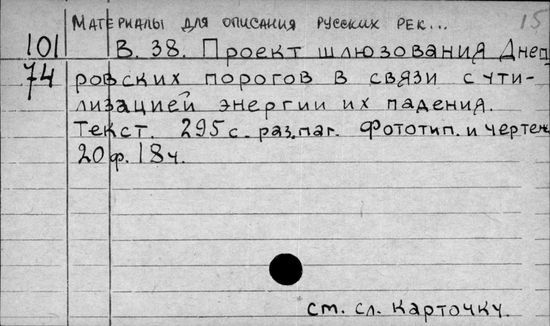 Материалы для описания русских рек... 15
101 В. 38. Проект шлюзования Днеп
74 ровских порогов в связи с ути-
лизацией энергии их падения.
Текст. 295 с. раз. паг. Фототип. и чертеж
20 ф. 18 ч.
см. сл. карточку.